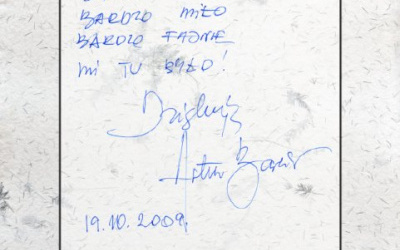 BARDZO MIŁO
BARDZO FAJNIE
MI TU BYŁO!
Dziękuję
Artur
19.10.2009.